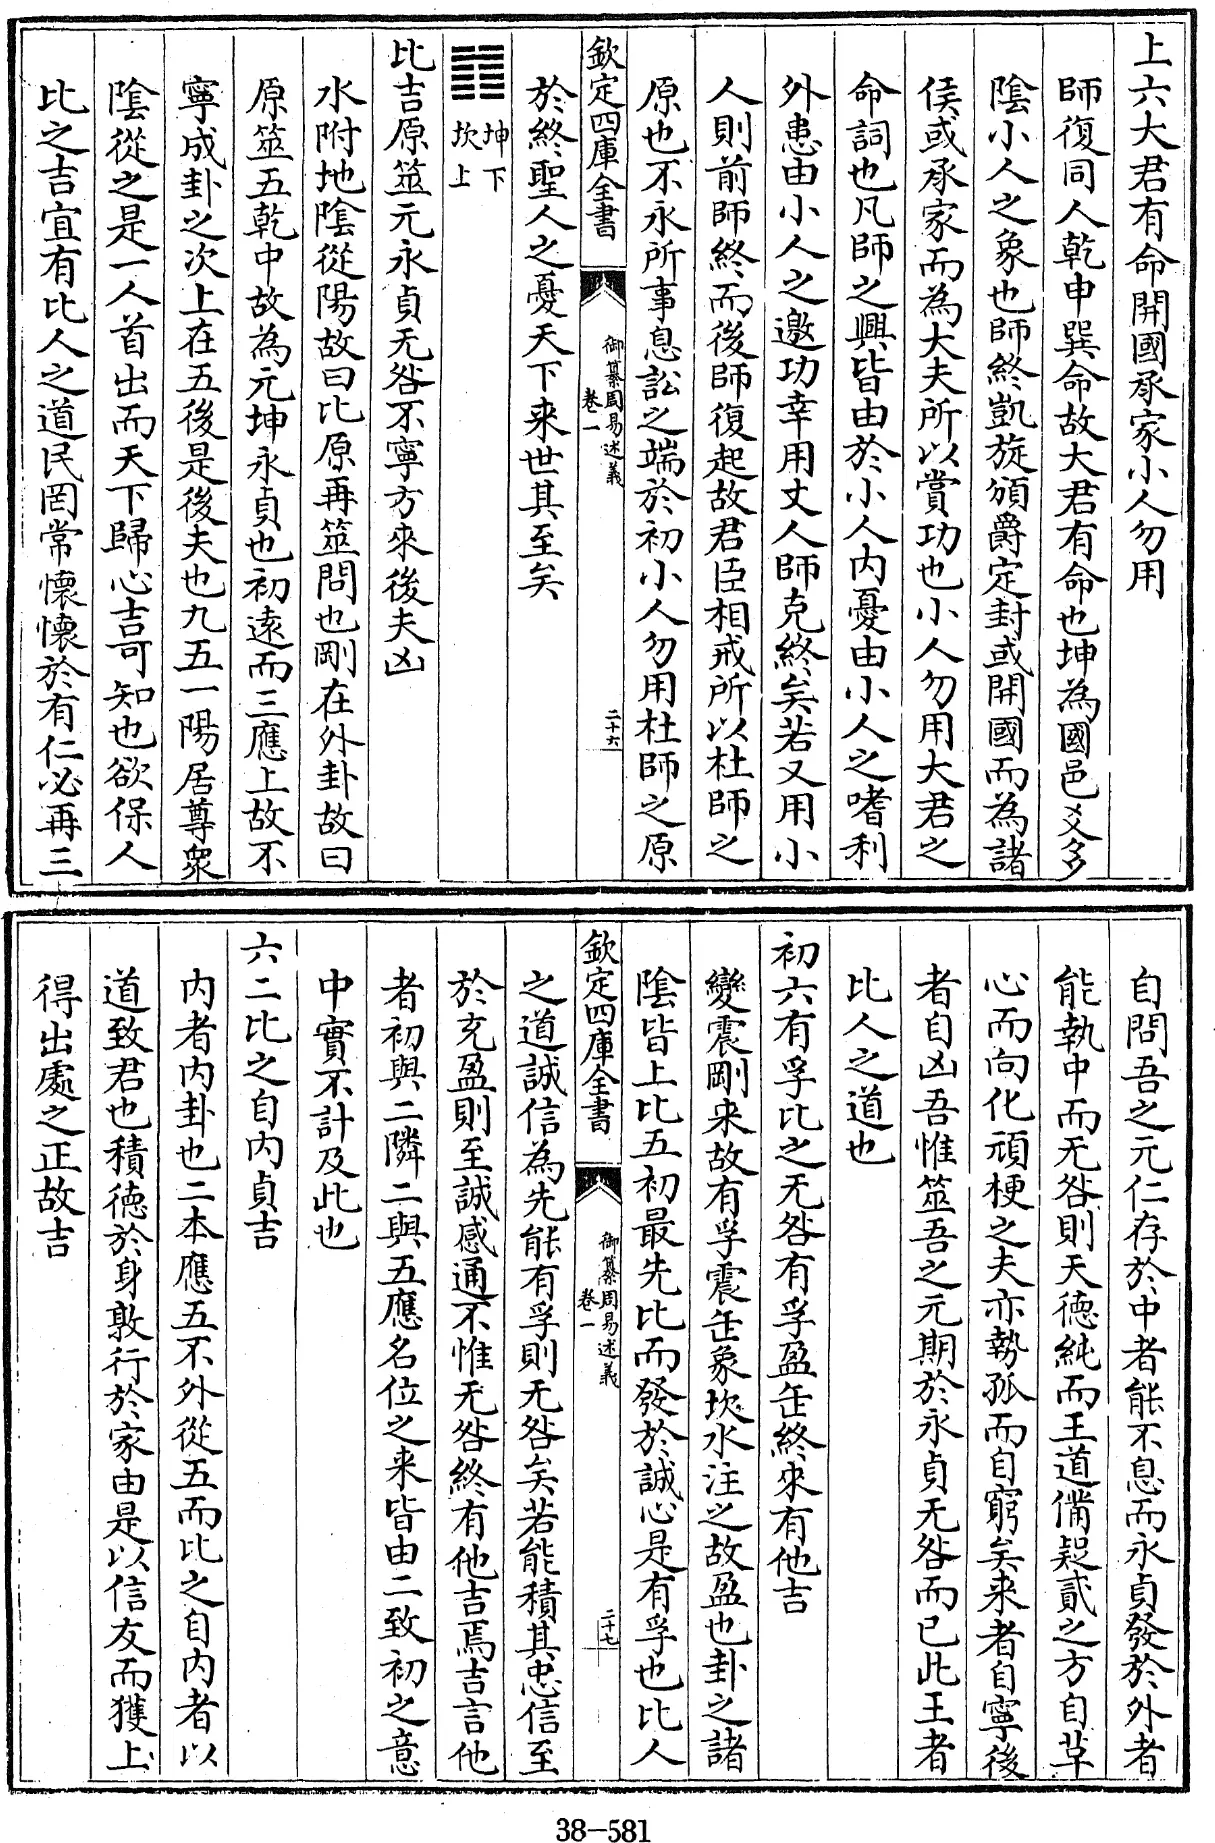 上六大君有命開國承家小人勿用
師復同人乾申巽命故大君有命也坤為國邑爻多
陰小人之象也師終凱旋頒爵定封或開國而為諸
侯或承家而為大夫所以賞功也小人勿用大君之
命詞也凡師之興皆由於小人内憂由小人之嗜利
外患由小人之邀功幸用丈人師克終矣若又用小
人則前師終而後師復起故君臣相戒所以杜師之
原也不永所事息訟之端於初小人勿用杜師之原
欽定四庫全書
御纂周易述義
卷一
二十六
於終聖人之憂天下来世其至矣
坤下
坎上
比吉原筮元永貞无咎不寧方來後夫凶
水附地陰從陽故曰比原再筮問也剛在外卦故曰
原筮五乾中故為元坤永貞也初遠而三應上故不
寧成卦之次上在五後是後夫也九五一陽居尊衆
陰從之是一人首出而天下歸心吉可知也欲保人
比之吉宜有比人之道民罔常懷懷於有仁必再三
自問吾之元仁存於中者能不息而永貞發於外者
能執中而无咎則天德純而王道備疑貳之方自革
心而向化頑梗之夫亦勢孤而自窮矣来者自寧後
者自凶吾惟筮吾之元期於永貞无咎而已此王者
比人之道也
初六有孚比之无咎有孚盈缶終來有他吉
變震剛来故有孚震缶象坎水注之故盈也卦之諸
陰皆上比五初最先比而發於誠心是有孚也比人
欽定四庫全書
御纂周易述義
卷一
二十七
之道誠信為先能有孚則无咎矣若能積其忠信至
於充盈則至誠感通不惟无咎終有他吉焉吉言他
者初與二隣二與五應名位之来皆由二致初之意
中實不計及此也
六二比之自内貞吉
内者内卦也二本應五不外從五而比之自内者以
道致君也積德於身敦行於家由是以信友而獲上
得出處之正故吉
38-581